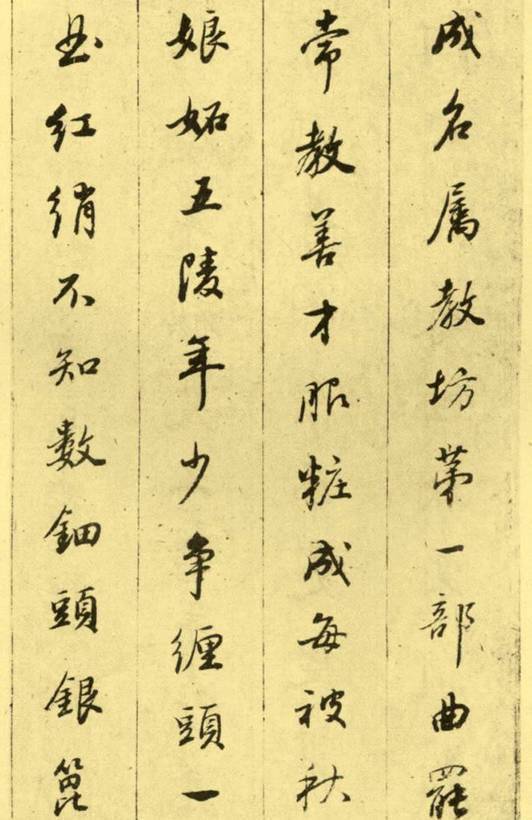 成名属教坊第一部曲罷
常教善才服粧成每被秋
娘妬五陵年少争纏頭一
曲紅綃不知數鈿頭銀篦